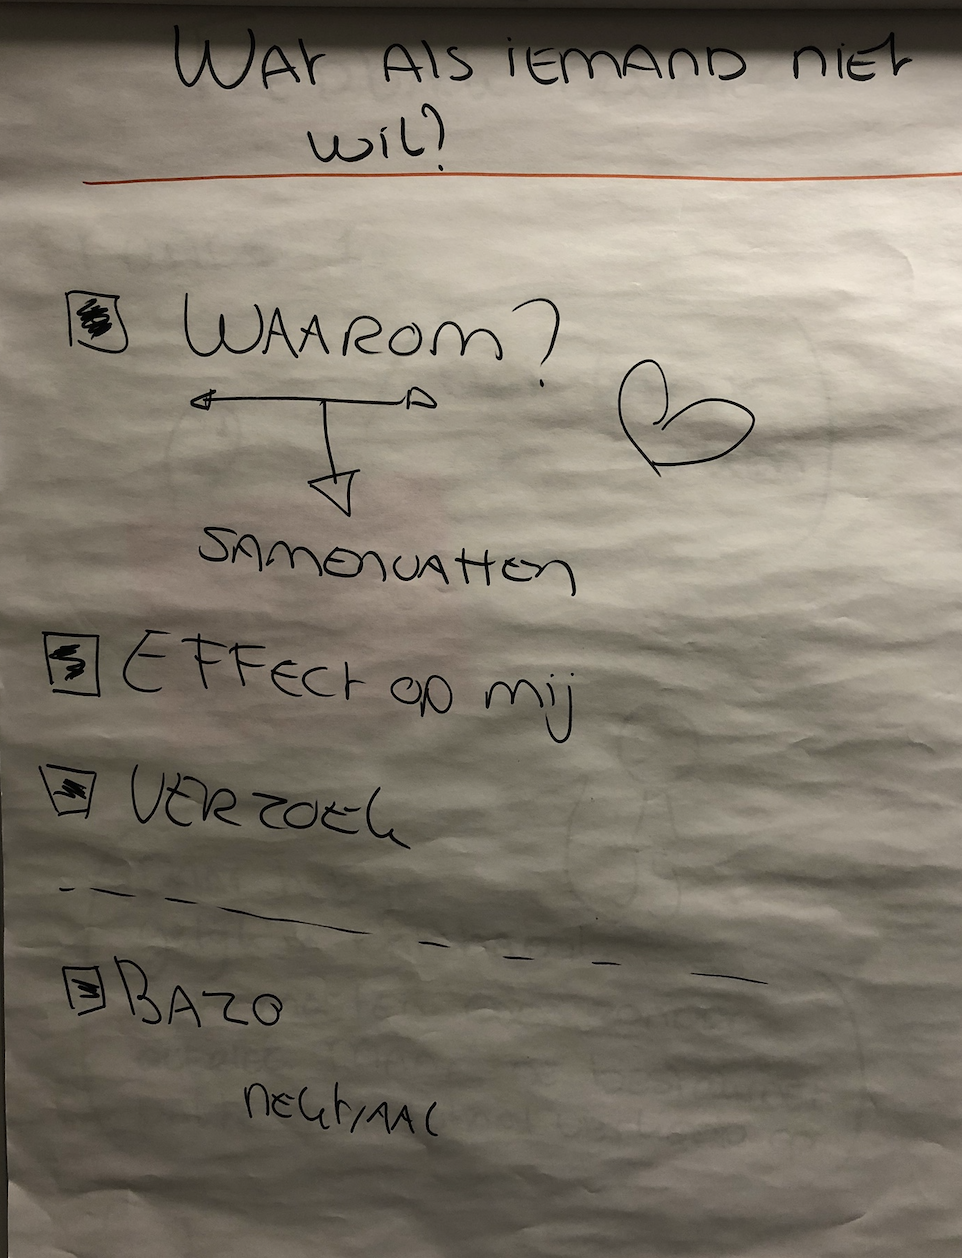 WAT ALS IEMAND NIET
WIL?
WAAROM?
SAMENVATTEN
EFFECT OP MIJ
VERZOEK
BAZO
NEUTRAAL